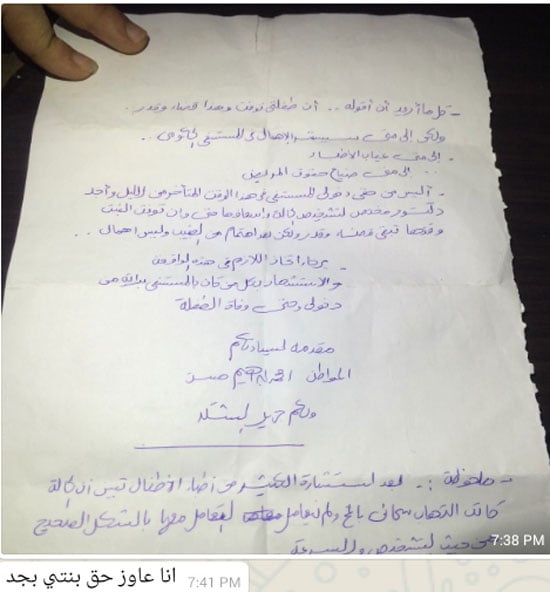 - كل ما أريد أن أقوله .. أن طفلتي توفت وهذا قضاء وقدر .
ولكن إلى متى سيستمر الإهمال في المستشفى الحكومي ..
- إلى متى غياب الأطباء
.. إلى متى ضياع حقوق المريض
- أليس من حقي دخولي المستشفى في هذا الوقت المتأخر من الليل وأجد
دكتور مختص لتشخيص حالة واسعافها حتى وإن توفت البنت
وقتها تبقى قضاء وقدر ولكن بعد اهتمام من الطبيب وليس اهمال ..
- برجاء اتخاذ اللازم في هذه الواقعة
والاستشهاد بكل من كان بالمستشفى بداية من
دخولي وحتى وفاة الطفلة
مقدمه لسيادتكم
المواطن ابراهيم حسن
ولكم جزيل الشكر
- ملحوظة :- بعد استشارة الكثير من أطباء الأطفال تبين أن الحالة
كانت التهاب سحائي بالمخ ولم يتعامل معها بالشكل الصحيح
من حيث التشخيص والسرعة
7:38 PM
انا عاوز حق بنتي بجد
7:41 PM